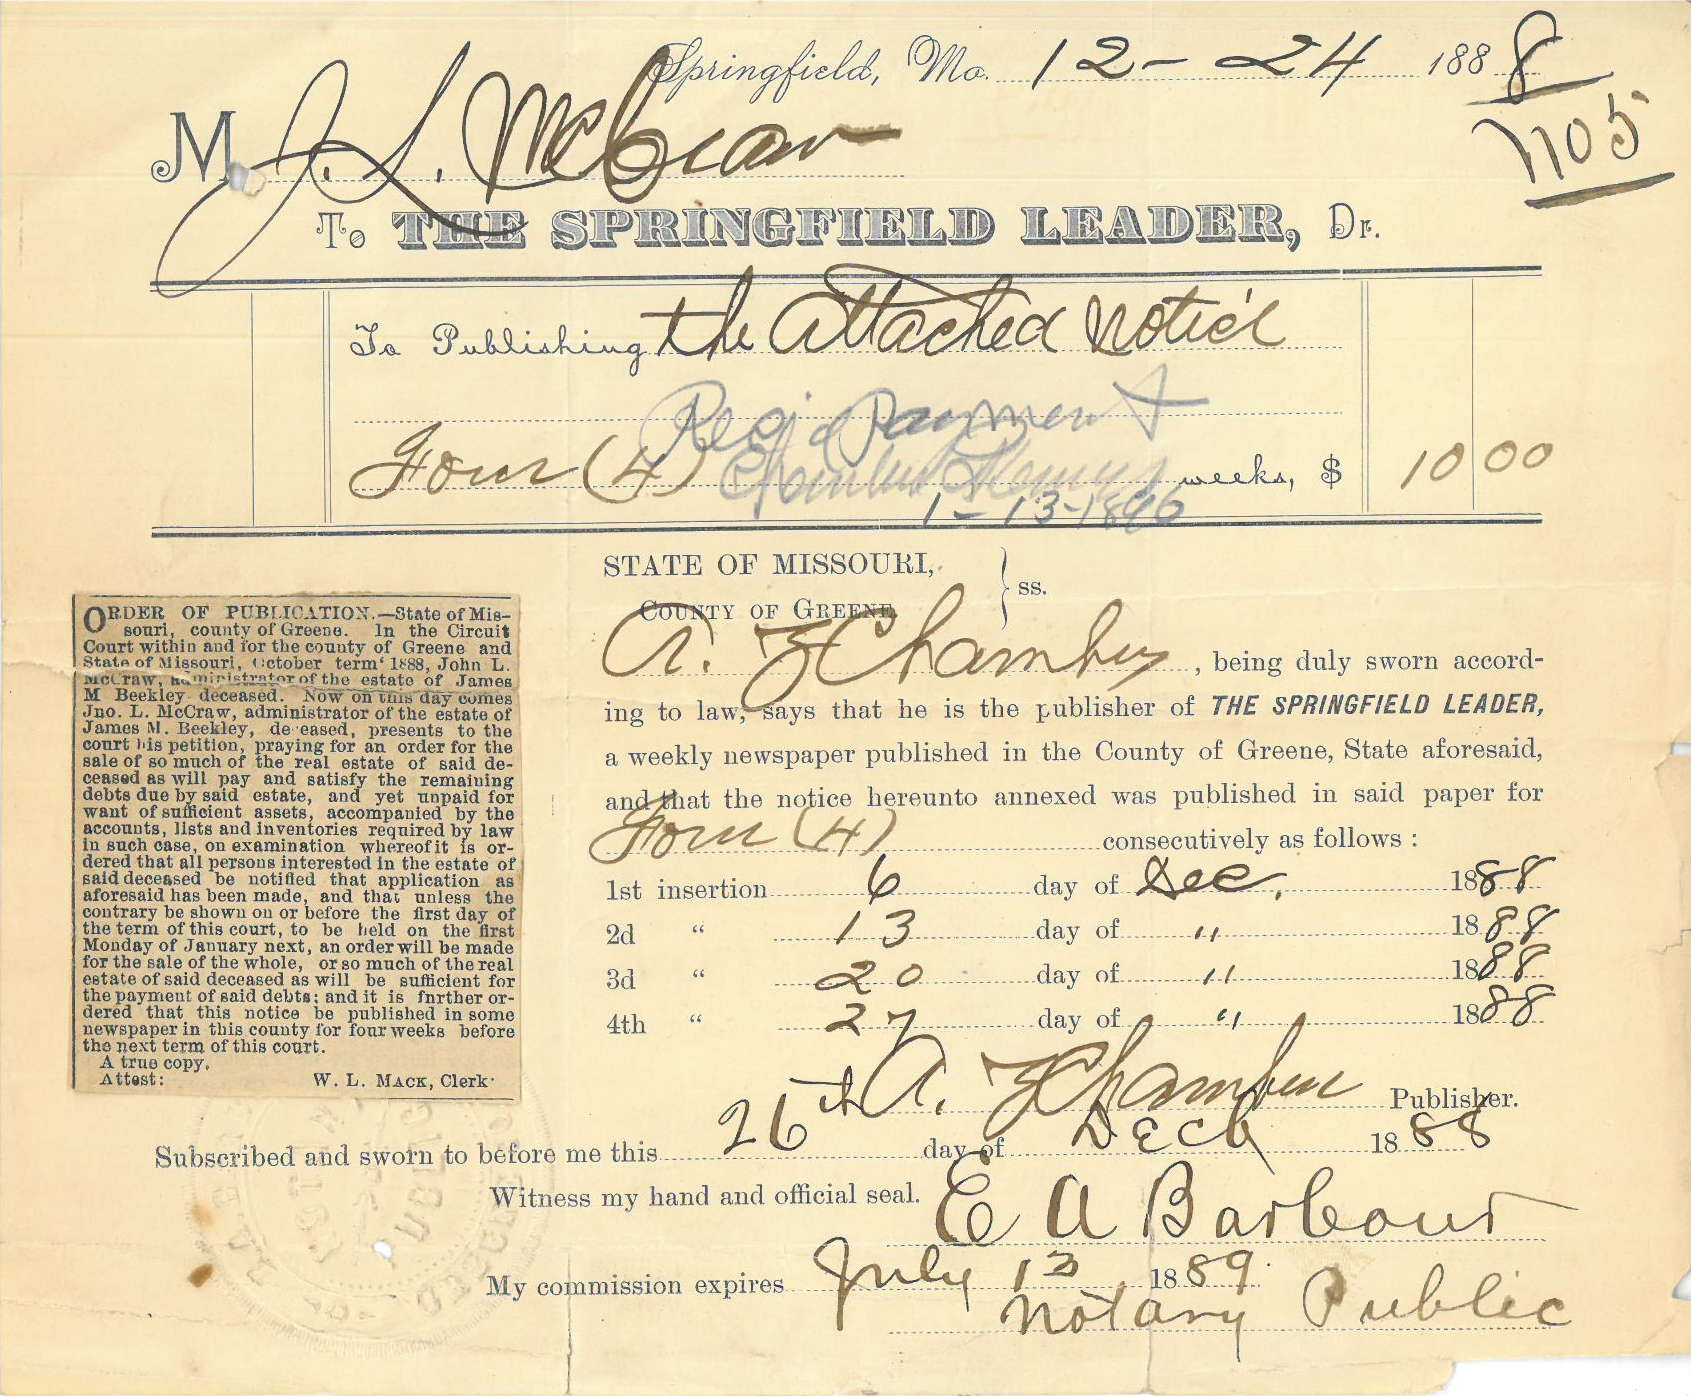 Springfield, Mo. 12-24 1888
1105
M J. L. McCraw
To THE SPRINGFIELD LEADER, Dr.
To Publishing the attached notice
Rec'd Payment
Four (4) weeks, $ 10 00
1-13-1896
STATE OF MISSOURI,
COUNTY OF GREENE, } ss.
A. Z Chambers, being duly sworn accord-
ing to law, says that he is the publisher of THE SPRINGFIELD LEADER,
a weekly newspaper published in the County of Greene, State aforesaid,
and that the notice hereunto annexed was published in said paper for
Four (4) consecutively as follows :
1st insertion 6 day of Dec. 1888
2d “ 13 day of " 1888
3d “ 20 day of " 1888
4th “ 27 day of " 1888
A. Z Chambers Publisher.
Subscribed and sworn to before me this 26th day of Dec 1888
Witness my hand and official seal.
E A Barbour
My commission expires July 13 1889.
Notary Public
ORDER OF PUBLICATION.—State of Mis-
souri, county of Greene. In the Circuit
Court within and for the county of Greene and
State of Missouri, October term‘ 1888, John L.
McCraw, administrator of the estate of James
M Beekley deceased. Now on this day comes
Jno. L. McCraw, administrator of the estate of
James M. Beekley, deceased, presents to the
court his petition, praying for an order for the
sale of so much of the real estate of said de-
ceased as will pay and satisfy the remaining
debts due by said estate, and yet unpaid for
want of sufficient assets, accompanied by the
accounts, lists and inventories required by law
in such case, on examination whereof it is or-
dered that all persons interested in the estate of
said deceased be notified that application as
aforesaid has been made, and that unless the
contrary be shown on or before the first day of
the term of this court, to be held on the first
Monday of January next, an order will be made
for the sale of the whole, or so much of the real
estate of said deceased as will be sufficient for
the payment of said debts; and it is fnrther or-
dered that this notice be published in some
newspaper in this county for four weeks before
the next term of this court.
A true copy.
Attest: W. L. MACK, Clerk.